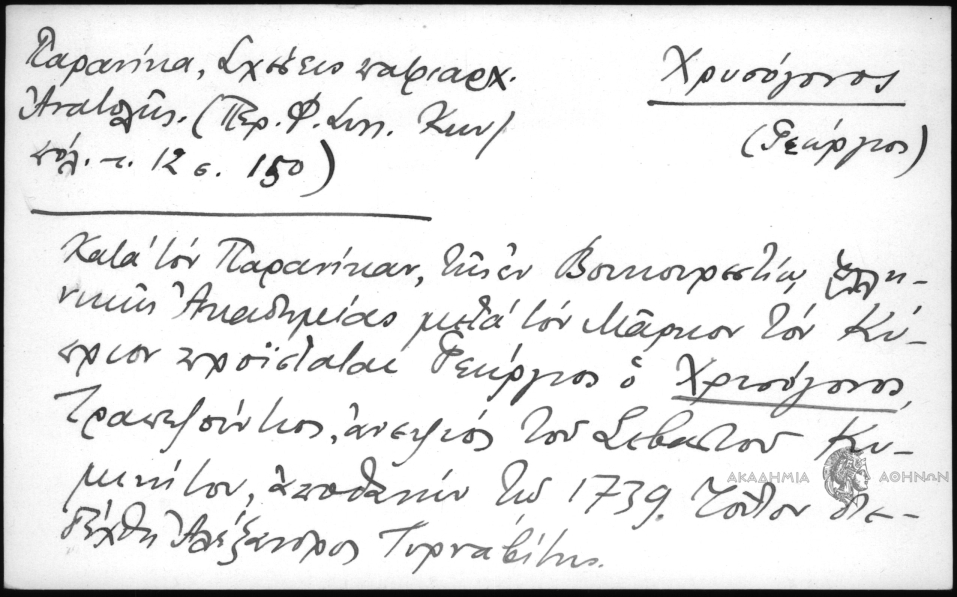 Παρανίκα, Σχέσεις πατριαρχ.
Ἀνατολῆς. (Περ. Φ. Συλ. Κων/
πόλ. τ. 12 σ. 150)
Χρυσόγονος
(Γεώργιος)
Κατὰ τὸν Παρανίκαν, τῆς ἐν Βουκουρεστίῳ ἑλλη-
νικῆς Ἀκαδημείας μετὰ τὸν Μᾶρκον τὸν Κύ-
πριον προΐσταται Γεώργιος ὁ Χρυσόγονος,
Τραπεζούντιος, ἀνεψιὸς τοῦ Σεβαστοῦ Κυ-
μινήτου, ἀποθανὼν τῷ 1739. Τοῦτον διε-
δέχθη Ἀλέξανδρος Τυρναβίτης.
ΑΚΑΔΗΜΙΑ ΑΘΗΝΩΝ